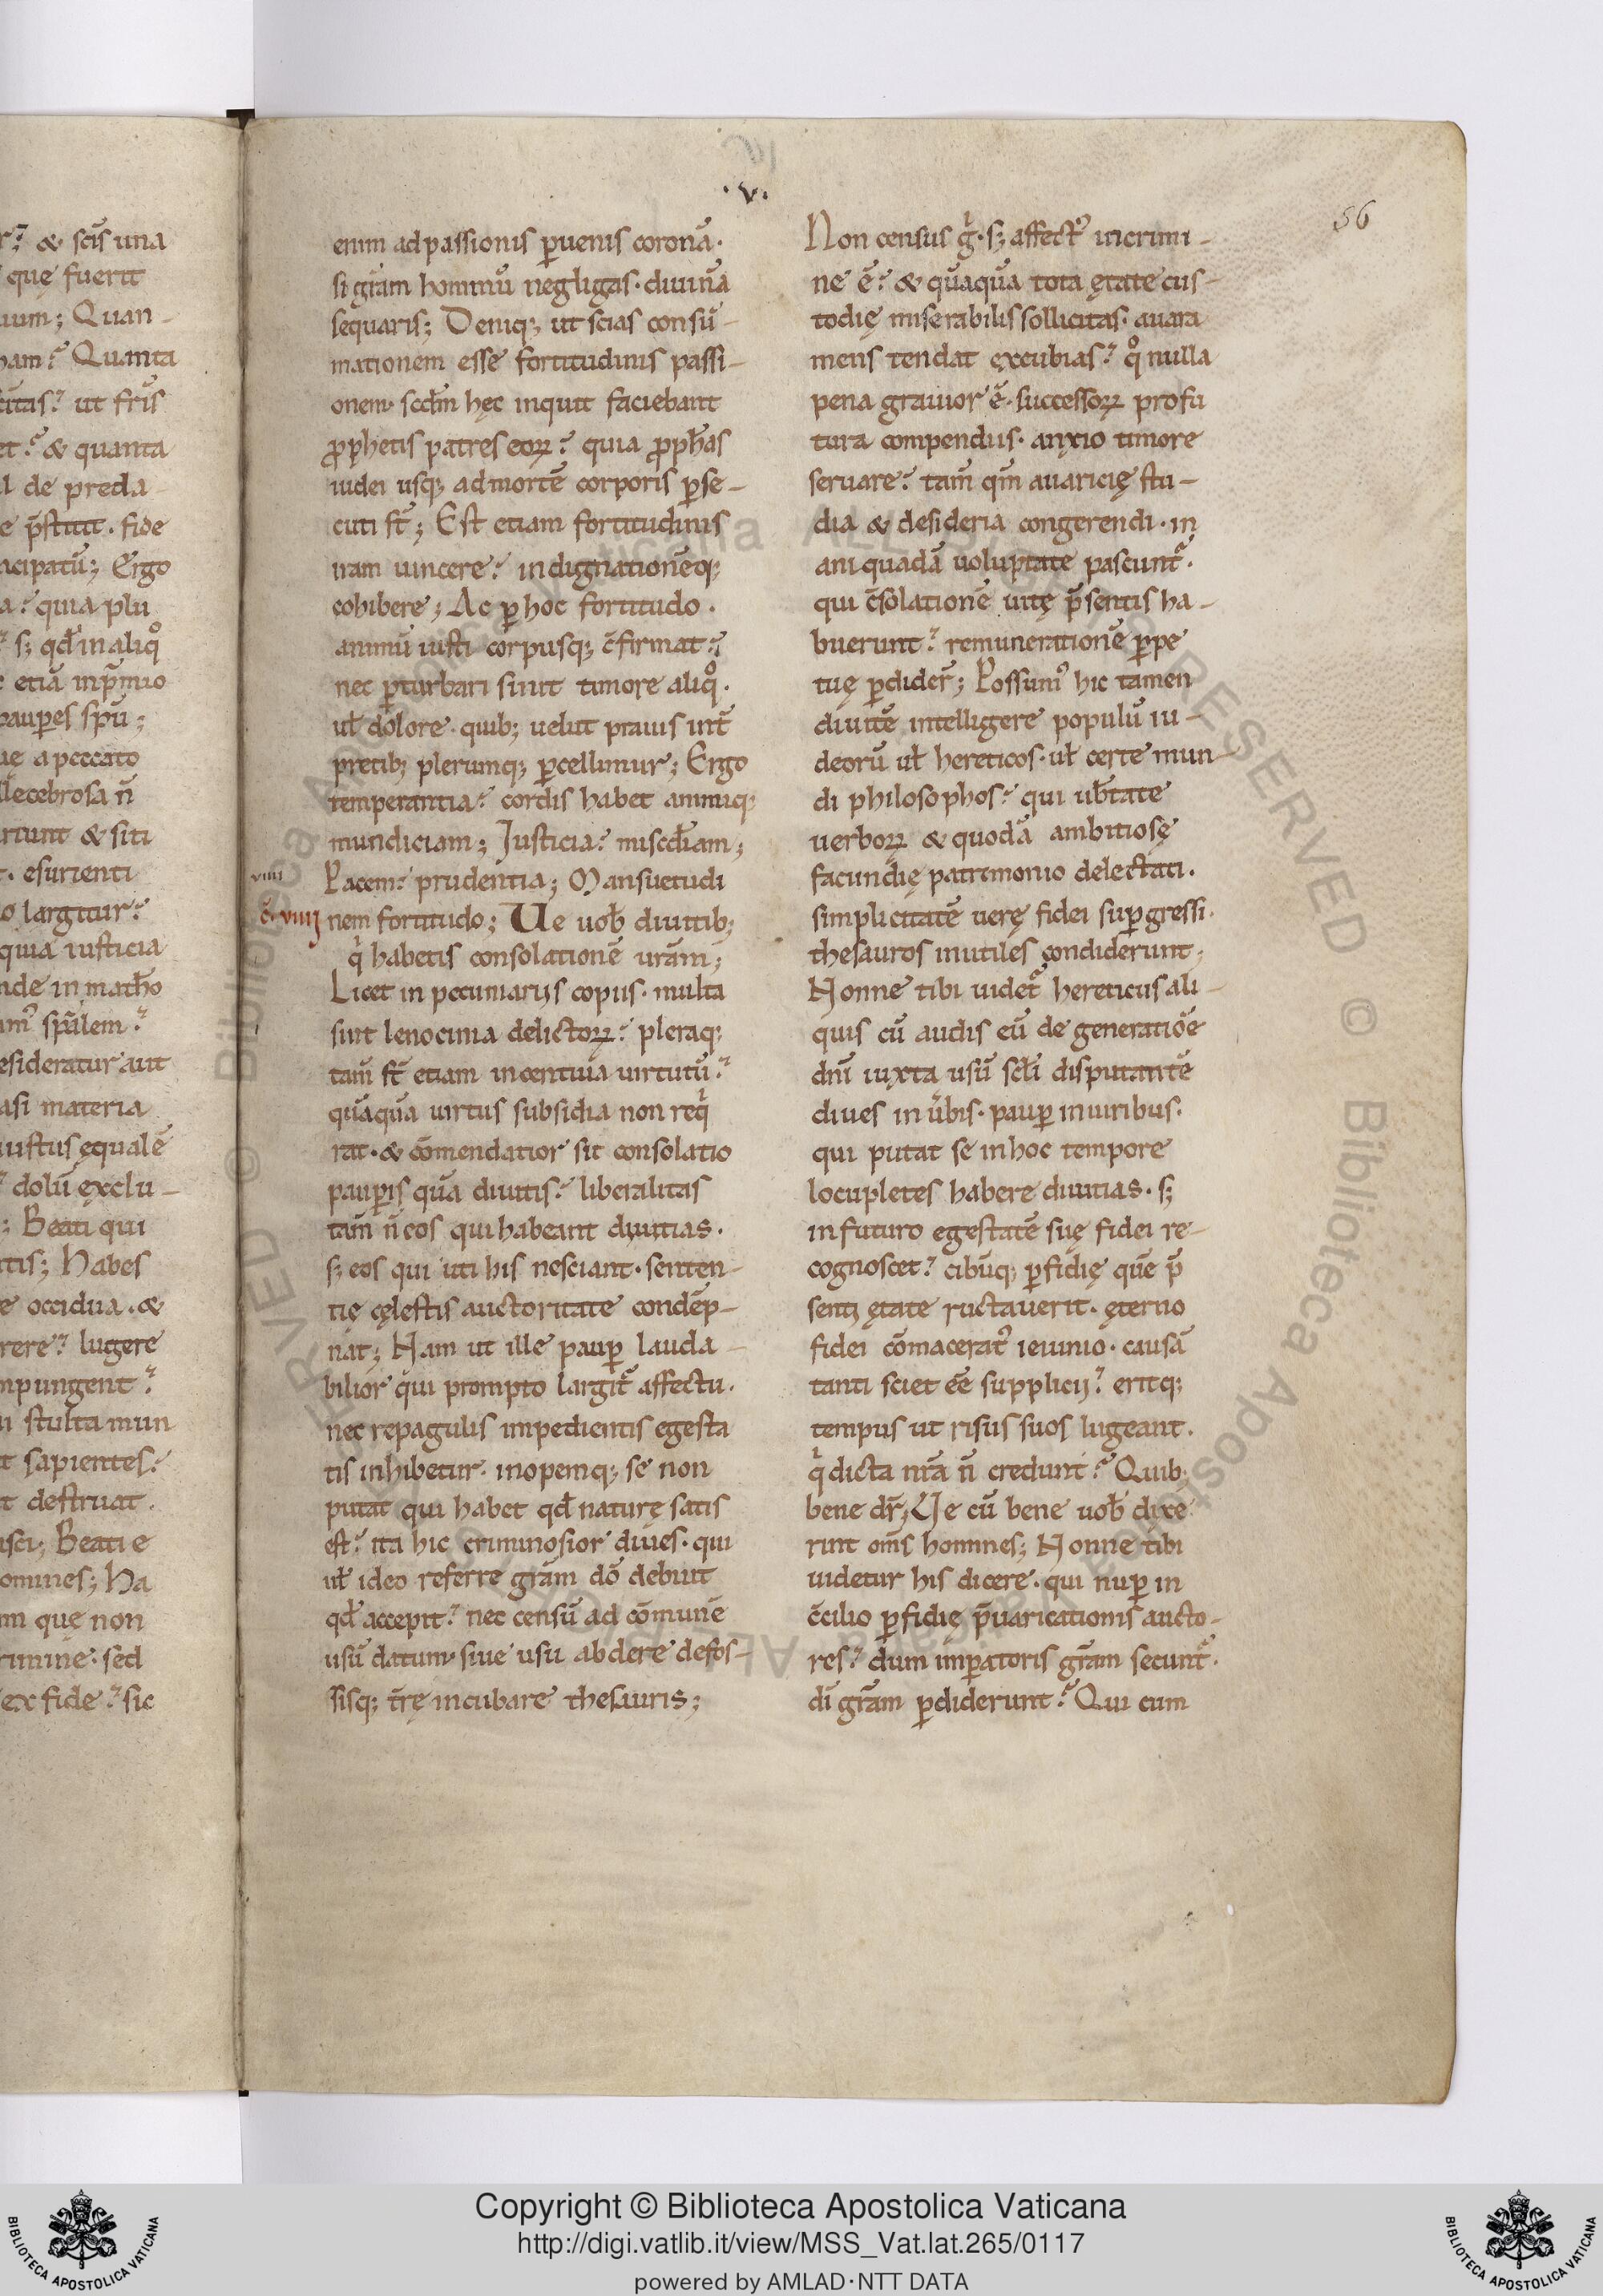 .v.
56
r? & scīs una
que fuerit
ium; Quan-
nam? Quanta
citas? ut frīs
et? & quanta
l de preda
e p̄stitit. fide
ncipatū; Ergo
a? quia plu
s; qd̄ in aliqͦ
etiā inp̄mio
pauꝑes spū;
ue a peccato
llecebrosa n̄
riunt & siti
. esurienti
o largitur?
quia iusticia
nde in math̄o
spālem?
esideratur aut
asi materia
iustus ęqualē
dolū exclu-
; Beati qui
tis; Habes
e occidua. &
rere? lugere
npungent?
stulta mun
t sapientes?
t destruat.
isci; Beati e
omines; Ha
m quę non
rimine. sed
ex fide? sic
enim ad passionis ꝑuenis coronā.
si grām hominū negligas. diuinā
sequaris; Deniqꝫ ut scias consū-
mationem esse fortitudinis passi-
onem. scdm̄ hęc inquit faciebant
ꝓphetis patres eoꝝ? quia ꝓph̄as
iudei usqꝫ ad mortē corporis ꝑse-
cuti st̄; Est etiam fortitudinis
iram uincere? indignationēqꝫ
cohibere; Ac ꝑ hoc fortitudo.
animū iusti corpusqꝫ c̄firmat?
nec ꝑturbari sinit timore aliqͦ.
uł dolore. quibꝫ uelut prauis int̄
pretibꝫ plerumqꝫ ꝑcellimur; Ergo
temperantia? cordis habet animiqꝫ
mundiciam; Justicia? miscd̄iam;
viiii Pacem? prudentia; Mansuetudi
c̄. viiij nem fortitudo; Ue uob̄ diuitibꝫ
qͥ habetis consolationē urām;
Licet in pecuniarijs copiis. multa
sint lenocinia delictoꝝ? pleraqꝫ
tam̄ st̄ etiam incentiua uirtutū?
quāquā uirtus subsidia non reqͥ
rat. & cōmendatior sit consolatio
pauꝑis quā diuitis? liberalitas
tam̄ n̄ eos qui habeant diuitias.
sꝫ eos qui uti his nesciant. senten-
tię cęlestis auctoritate condēp-
nat; Nam ut ille pauꝑ lauda-
bilior qui prompto largit᷑ affectu.
nec repagulis impedientis egesta
tis inhibetur. inopemqꝫ se non
putat qui habet qd̄ naturę satis
est? ita hic criminosior diues. qui
uł ideo referre grām dō debuit
qd̄ accepit? nec censū ad cōmunē
usū datum. siue usu abdere defos-
sisqꝫ t̄rę incubare thesauris;
Non census gͥ. sꝫ affectꝰ in crimi-
ne ē? & quāquā tota ętate cus-
todię miserabilis sollicitas. auara
mens tendat excubias? qͦ nulla
pena grauior ē. successoꝝ profu
tura compendiis. anxio timore
seruare? tam̄ qm̄ auaricię stu-
dia & desideria congerendi. in
ani quadā uoluptate pascunt᷑.
qui c̄solationē uitę p̄sentis ha-
buerunt? remunerationē ꝑpe
tuę ꝑdider̄; Possumꝰ hic tamen
diuitē intelligere populū iu-
deorū uł hereticos. uł certe mun-
di philosophos? qui ub̄tate
uerboꝝ & quodā ambitiosę
facundię patrimonio delectati.
simplicitatē uerę fidei suꝑgressi.
thesauros inutiles condiderunt;
Nonne tibi uidet᷑ hereticus ali-
quis cū audis eū de generatiōe
dnī iuxta usū scłi disputantē
diues in ūbis. pauꝑ in uiribus.
qui putat se in hoc tempore
locupletes habere diuitias. sꝫ
in futuro egestatē suę fidei re-
cognoscet? cibūqꝫ ꝑfidię quē p̄
senti ętate ructauerit. ęterno
fidei cōmaceratꝰ ieiunio. causā
tanti sciet eē supplicij? eritqꝫ
tempus ut risus suos lugeant.
qͥ dicta nrā n̄ credunt? Quibꝫ
bene dr̄; Ue cū bene uob̄ dixe
rint oms̄ homines; Nonne tibi
uidetur his dicere. qui nuꝑ in
c̄cilio ꝑfidię p̄uaricationis aucto-
res? dum imꝑatoris grām secunt᷑.
dī grām ꝑdiderunt? Qui cum
Copyright © Biblioteca Apostolica Vaticana
http://digi.vatlib.it/view/MSS_Vat.lat.265/0117
powered by AMLAD·NTT DATA
BIBLIOTECA APOSTOLICA VATICANA
BIBLIOTECA APOSTOLICA VATICANA